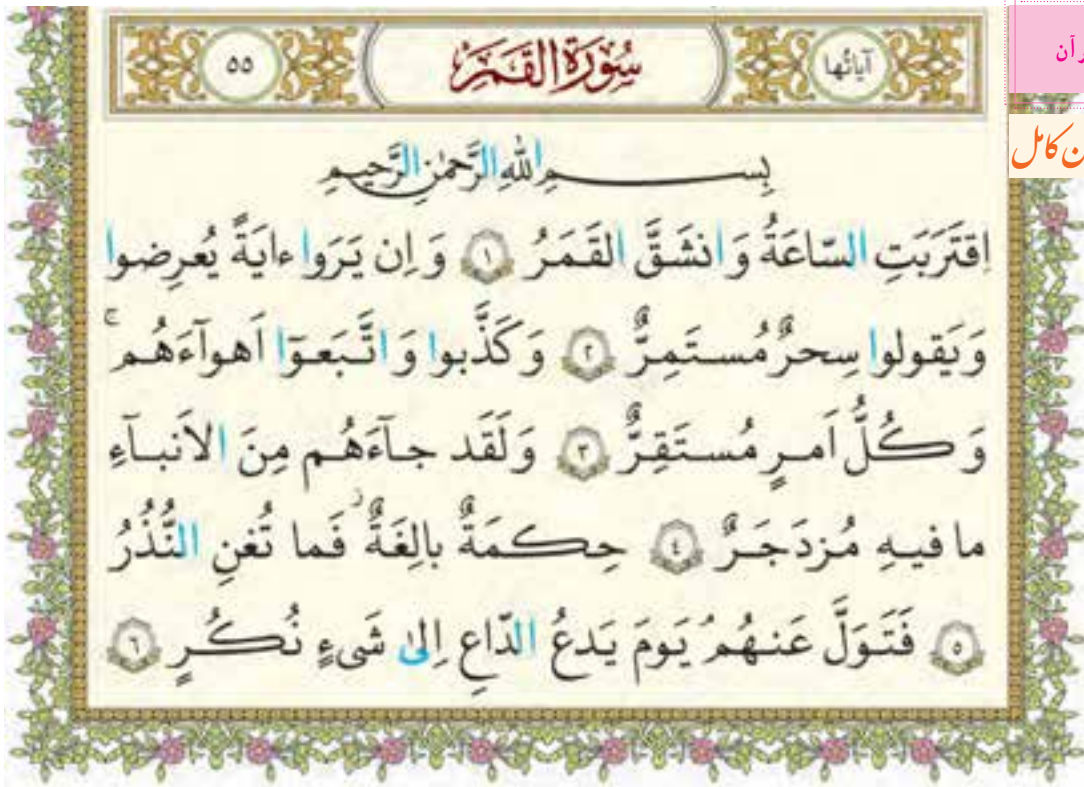 آیاتُها سُورَةُ القَمَرِ ٥٥
رآن
ن کامل
بِسمِ اللهِ الرَّحمٰنِ الرَّحیمِ
اِقتَرَبَتِ السّاعَةُ وَ انشَقَّ القَمَرُ ١ وَ اِن یَرَوا ءایَةً یُعرِضوا
وَ یَقولوا سِحرٌ مُستَمِرٌّ ٢ وَ کَذَّبوا وَ اتَّبَعوٓا اَهوآءَهُم ۚ
وَ کُلُّ اَمرٍ مُستَقِرٌّ ٣ وَ لَقَد جآءَهُم مِنَ الاَنبآءِ
ما فیهِ مُزدَجَرٌ ٤ حِکمَةٌ بالِغَةٌ فَما تُغنِ النُّذُرُ
٥ فَتَوَلَّ عَنهُم یَومَ یَدعُ الدّاعِ اِلیٰ شَیءٍ نُکُرٍ ٦